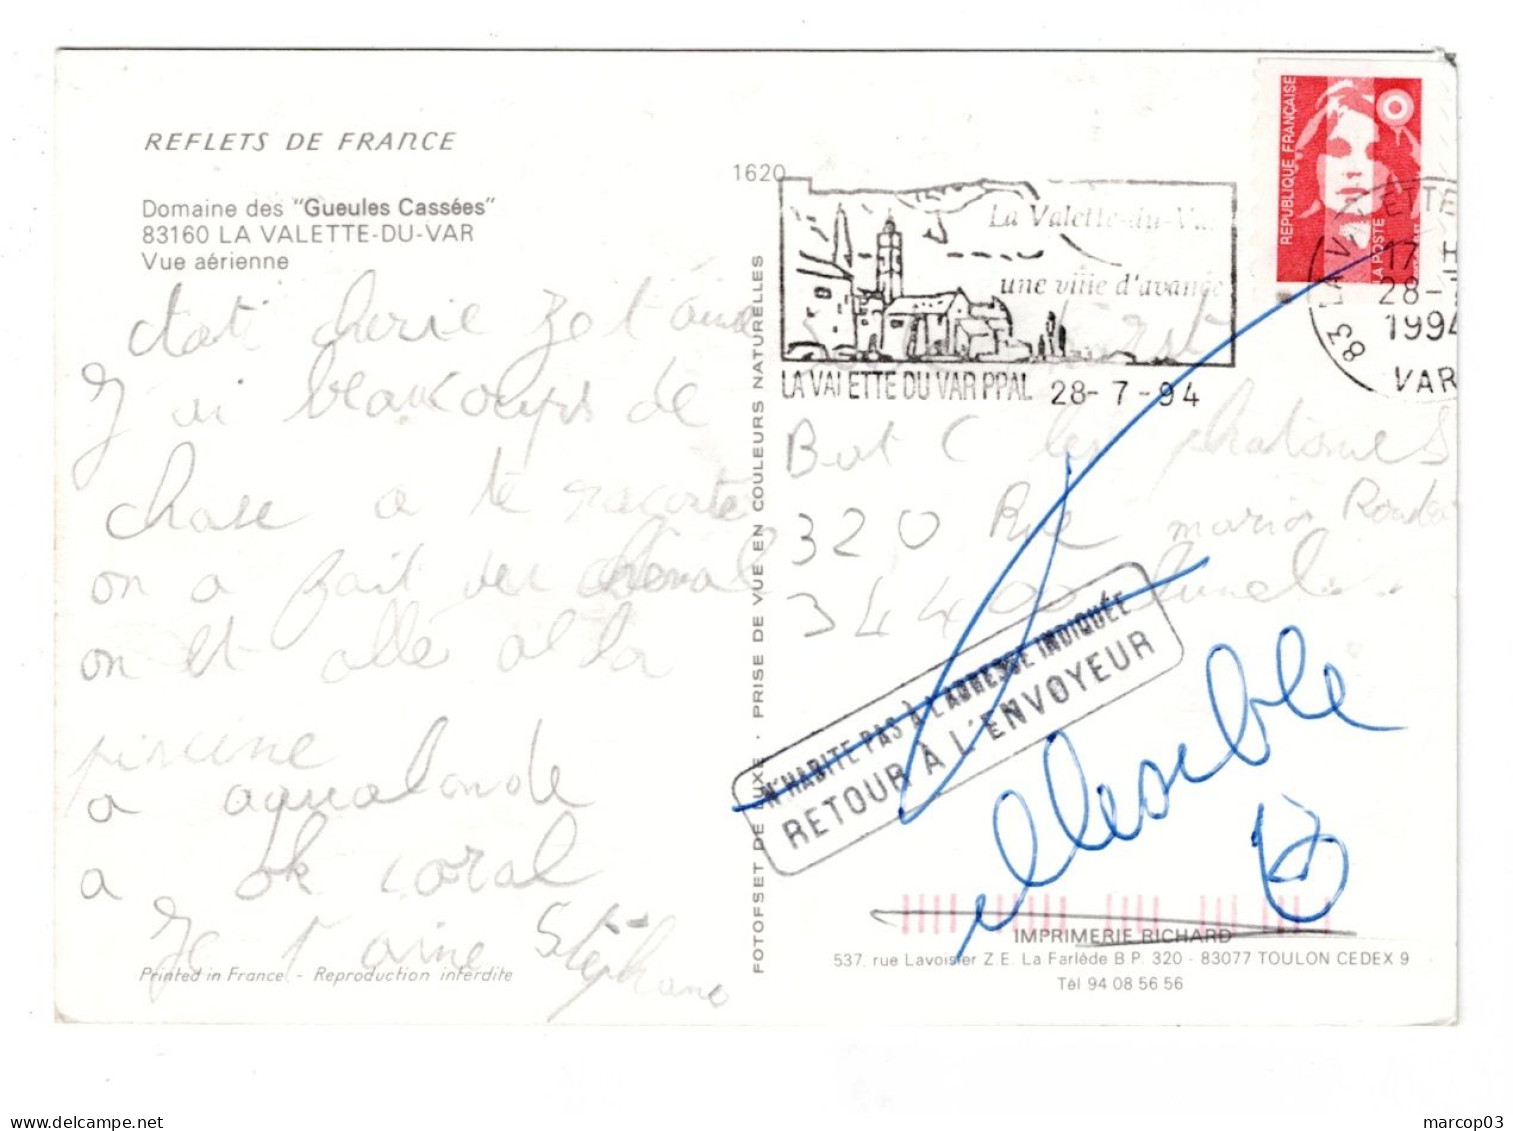 REFLETS DE FRANCE
Domaine des "Gueules Cassées"
83160 LA VALETTE-DU-VAR
Vue aérienne
tati cherie je t'aime
J ai beaucoups de
chose a te raconter
on a fait du cheval
on et allé a la
piscine
a aqualonde
a ok coral
Je t aime Stéphane
Printed in France - Reproduction interdite
FOTOFSET DE LUXE - PRISE DE VUE EN COULEURS NATURELLES
1620
La Valette-du-Var
une ville d'avance
LA VALETTE DU VAR PPAL 28-7-94
REPUBLIQUE FRANÇAISE
LA POSTE
83 LA VALETTE
17 H
28-7
1994
VAR
Bat C les
320 Rue marion
34400 lunel
N'HABITE PAS À L'ADRESSE INDIQUÉE
RETOUR À L'ENVOYEUR
illisible
IMPRIMERIE RICHARD
537, rue Lavoisier Z.E. La Farlède B.P. 320 - 83077 TOULON CEDEX 9
Tél 94 08 56 56
marcop03